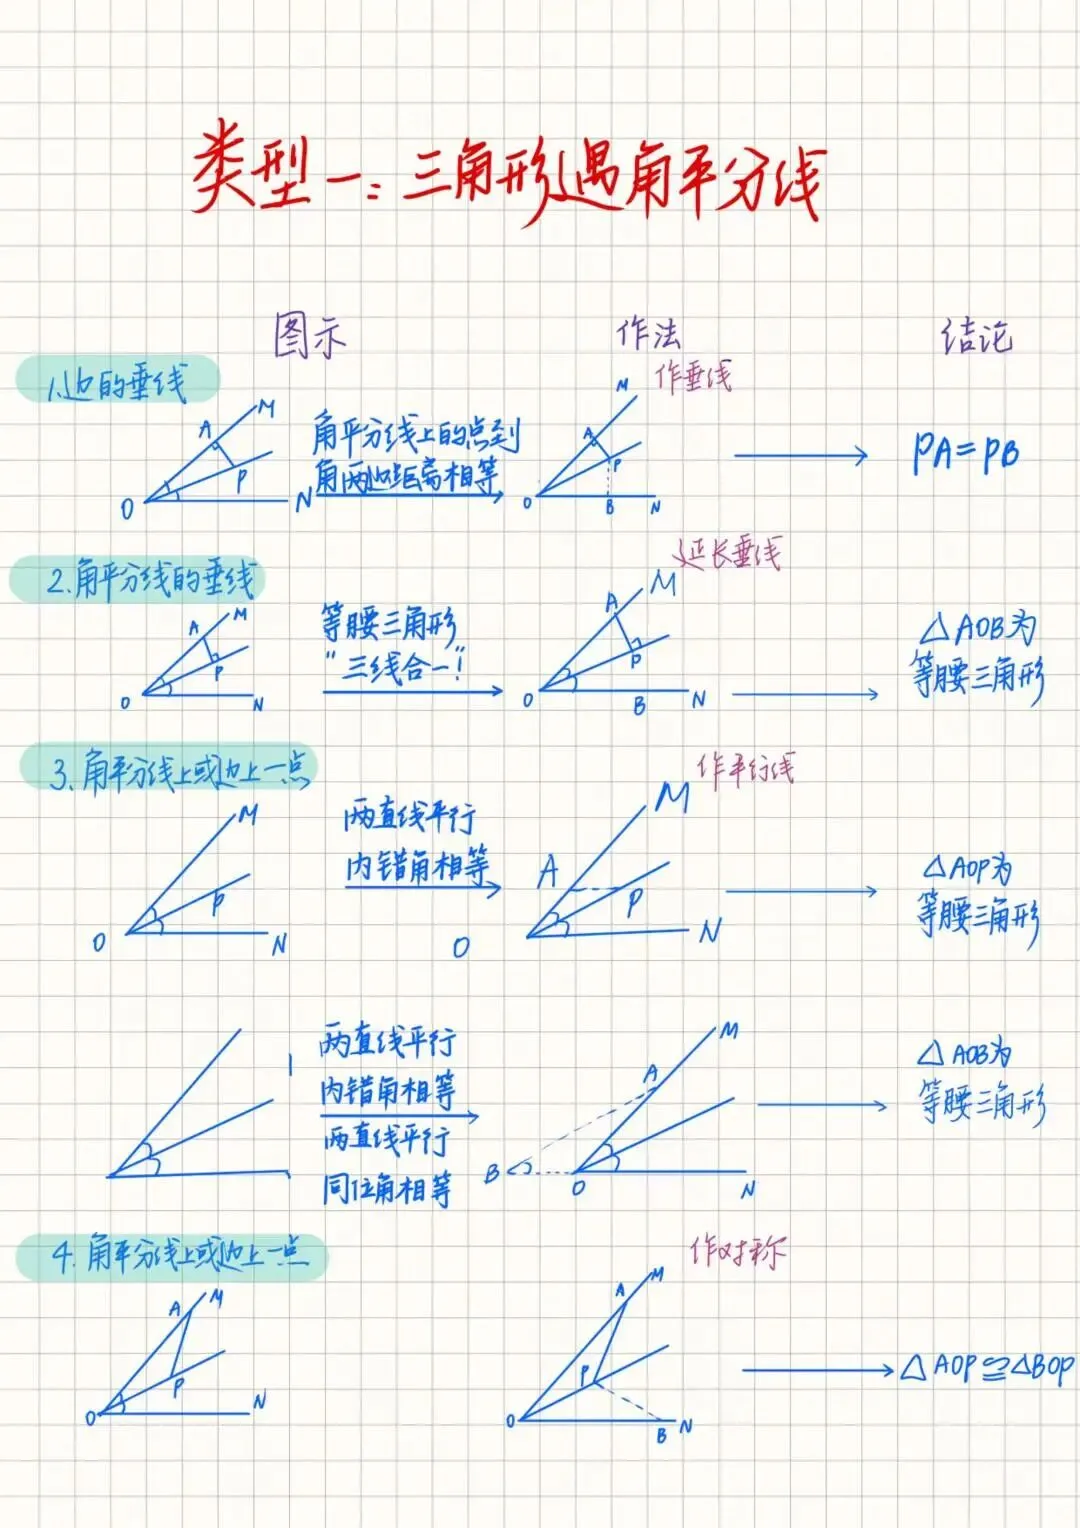 类型一：三角形遇角平分线
图示 作法 结论
作垂线
1.边的垂线
A M
P
O N
角平分线上的点到
角两边距离相等
M
A
P
O B N
PA=PB
延长垂线
2.角平分线的垂线
A M
P
O N
等腰三角形
"三线合一!"
A M
P
O B N
△AOB为
等腰三角形
作平行线
3.角平分线上或边上一点
M
P
O N
两直线平行
内错角相等
M
A P
O N
△AOP为
等腰三角形
两直线平行
内错角相等
两直线平行
同位角相等
M
A
B O N
△AOB为
等腰三角形
作对称
4.角平分线上或边上一点
A M
P
O N
A M
P
O B N
△AOP≌△BOP